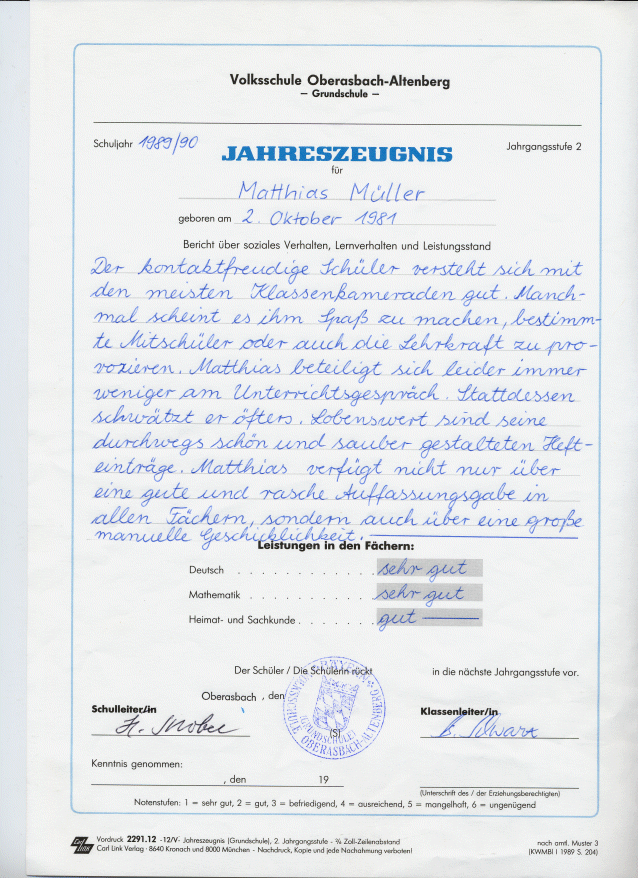 Volksschule Oberasbach-Altenberg
– Grundschule –
Schuljahr 1989/90
Jahrgangsstufe 2
JAHRESZEUGNIS
für
Matthias Müller
geboren am 2. Oktober 1981
Bericht über soziales Verhalten, Lernverhalten und Leistungsstand
Der kontaktfreudige Schüler versteht sich mit
den meisten Klassenkameraden gut. Manch-
mal scheint es ihm Spaß zu machen, bestimm-
te Mitschüler oder auch die Lehrkraft zu pro-
vozieren. Matthias beteiligt sich leider immer
weniger am Unterrichtsgespräch. Stattdessen
schwätzt er öfters. Lobenswert sind seine
durchwegs schön und sauber gestalteten Heft-
einträge. Matthias verfügt nicht nur über
eine gute und rasche Auffassungsgabe in
allen Fächern, sondern auch über eine große
manuelle Geschicklichkeit.
Leistungen in den Fächern:
Deutsch . . . . . . . . . . sehr gut
Mathematik . . . . . . . . . . sehr gut
Heimat- und Sachkunde . . . . . . gut
Der Schüler / Die Schülerin rückt in die nächste Jahrgangsstufe vor.
Oberasbach , den
(S)
VOLKSSCHULE OBERASBACH-ALTENBERG
(GRUNDSCHULE)
Schulleiter/in
Klassenleiter/in
Kenntnis genommen:
, den 19
(Unterschrift des / der Erziehungsberechtigten)
Notenstufen: 1 = sehr gut, 2 = gut, 3 = befriedigend, 4 = ausreichend, 5 = mangelhaft, 6 = ungenügend
Carl Link
Vordruck 2291.12 -12/V- Jahreszeugnis (Grundschule), 2. Jahrgangsstufe - ¾ Zoll-Zeilenabstand
Carl Link Verlag · 8640 Kronach und 8000 München - Nachdruck, Kopie und jede Nachahmung verboten!
nach amtl. Muster 3
(KWMBl I 1989 S. 204)